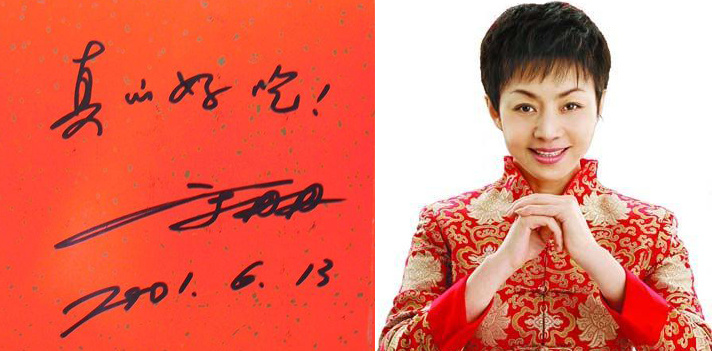 真的好吃!
宋丹丹
2001.6.13